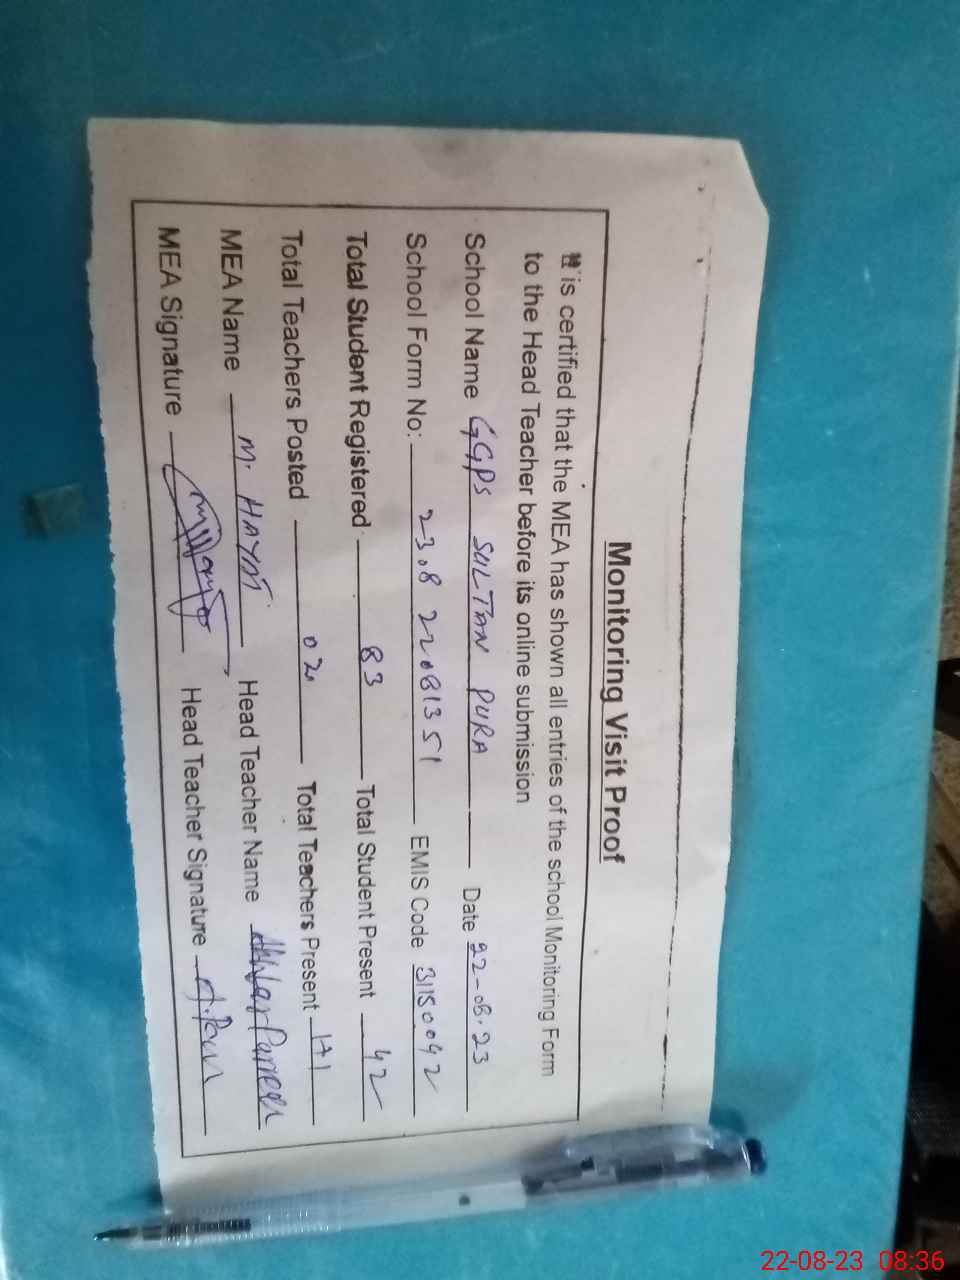 Monitoring Visit Proof
It is certified that the MEA has shown all entries of the school Monitoring Form
to the Head Teacher before its online submission
School Name GGPS SULTAN PURA Date 22-08-23
School Form No: 2308 22081351 EMIS Code 31150042
Total Student Registered 83 Total Student Present 42
Total Teachers Posted 02 Total Teachers Present 1+1
MEA Name M. HAYAT Head Teacher Name Akhtar Parveen
MEA Signature Head Teacher Signature
22-08-23 08:36